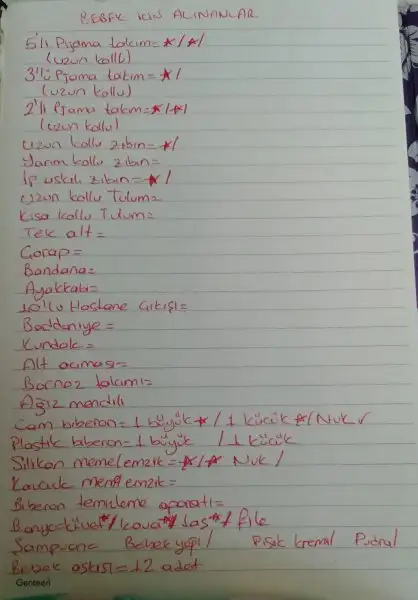 BEBEK İÇİN ALINANLAR
5'li Pijama takım= */*/
(uzun kollu)
3'lü Pjama takım= */
(uzun kollu)
2'li Pjama takım=*/*/
(uzun kollu)
Uzun kollu zıbın= */
Yarım kollu zıbın=
İp askılı zıbın= */
Uzun kollu Tulum=
Kısa kollu Tulum=
Tek alt =
Çorap=
Bandana=
Ayakkabı=
10'lu Hastane Çıkışı=
Battaniye =
Kundak=
Alt açması=
Bornoz takımı=
Ağız mendili
Cam biberon= 1 büyük * / 1 küçük */ Nuk ✓
Plastik biberon= 1 büyük / 1 küçük
Silikon meme/emzik = */* Nuk /
Kauçuk meme/emzik =
Biberon temizleme aparatı=
Banyo=küvet*/kova*/tas*/ file
Şampuan= Bebek yağı/ Pişik kremi/ Pudra/
Bebek askısı=12 adet